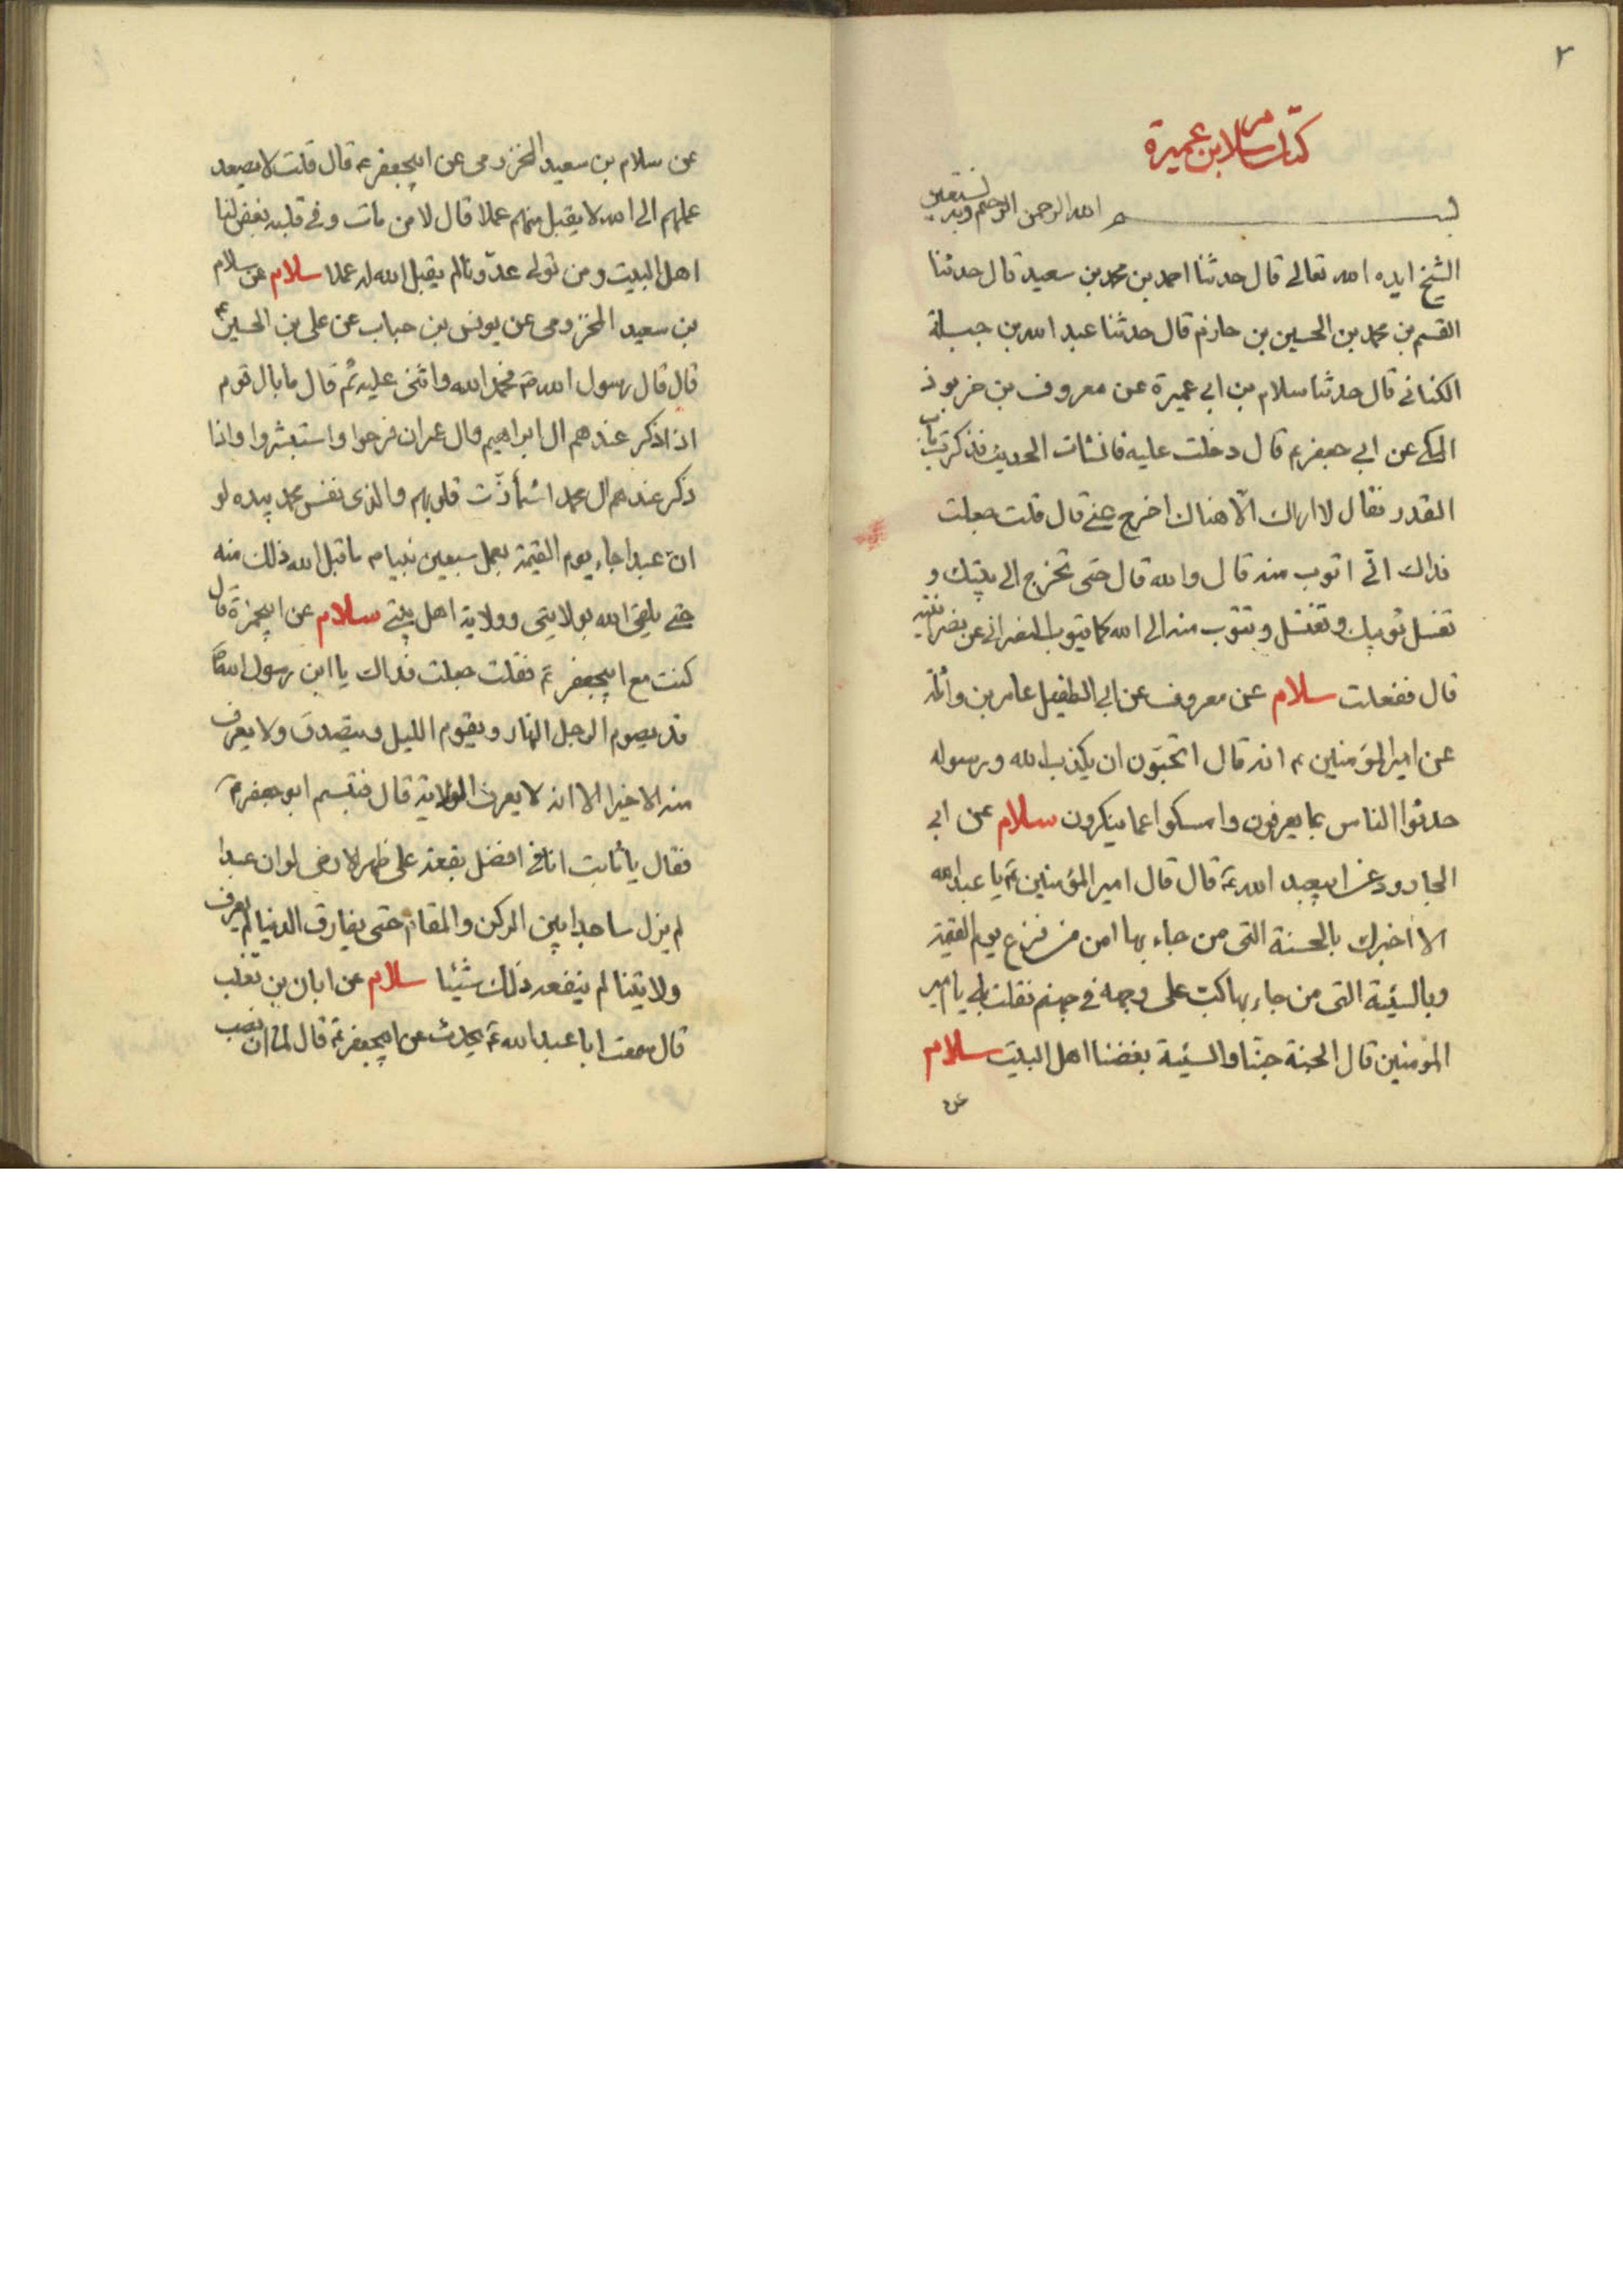 ٢
كتاب سلام بن عميرة
بسم الله الرحمن الرحيم وبه نستعين
الشيخ ايده الله تعالى قال حدثنا احمد بن محمد بن سعيد قال حدثنا
القسم بن محمد بن الحسين بن حازم قال حدثنا عبد الله بن جبلة
الكناني قال حدثنا سلام بن ابي عميرة عن معروف بن خربوذ
المكي عن ابي جعفر ع قال دخلت عليه فانشات الحديث فذكرت باب
القدر فقال لا اراك الا هناك اخرج عني قال قلت جعلت
فداك اني اتوب منه قال والله قال حتى تخرج الى بيتك و
تغسل ثوبيك وتغتسل وتتوب منه الى الله كما يتوب النصراني عن نصرانيته
قال ففعلت سلام عن معروف عن ابي الطفيل عامر بن واثلة
عن امير المؤمنين ع انه قال اتحبّون ان يكذب الله ورسوله
حدثوا الناس بما يعرفون وامسكوا عما ينكرون سلام عن ابي
الجارود عن ابيعبد الله ع قال قال امير المؤمنين ع يا عبد الله
الا اخبرك بالحسنة التي من جاء بها امن من فزع يوم القيمة
وبالسيئة التي من جاء بها اكبت على وجهه في جهنم فقلت بلى يا امير
المؤمنين قال الحسنة حبنا والسيئة بغضنا اهل البيت سلام
عن
عن سلام بن سعيد المخزومي عن ابيجعفر ع قال قلت لا يصعد
عملهم الى الله لا يقبل منهم عملا قال لا من مات وفي قلبه بغض لنا
اهل البيت ومن تولى عدونا لم يقبل الله له عملا سلام عن سلام
بن سعيد المخزومي عن يونس بن حباب عن علي بن الحسين ع
قال قال رسول الله ص فحمد الله واثنى عليه ثم قال ما بال قوم
اذا ذكر عندهم ال ابراهيم وال عمران فرحوا واستبشروا واذا
ذكر عندهم ال محمد اشمأزّت قلوبهم والذي نفس محمد بيده لو
ان عبدا جاء يوم القيمة بعمل سبعين نبيا ما قبل الله ذلك منه
حتى يلقى الله بولايتي وولاية اهل بيتي سلام عن ابيحمزة قال
كنت مع ابيجعفر ع فقلت جعلت فداك يا ابن رسول الله ص
قد يصوم الرجل النهار ويقوم الليل ويتصدق ولا يعرف
منه الا خيرا الا انه لا يعرف الولاية قال فتبسم ابو جعفر ع
فقال يا ثابت انا في افضل بقعة على ظهر الارض لو ان عبدا
لم يزل ساجدا بين الركن والمقام حتى يفارق الدنيا لم يعرف
ولايتنا لم ينفعه ذلك شيئا سلام عن ابان بن تغلب
قال سمعت ابا عبد الله ع يحدث عن ابيجعفر ع قال لما ان نصب